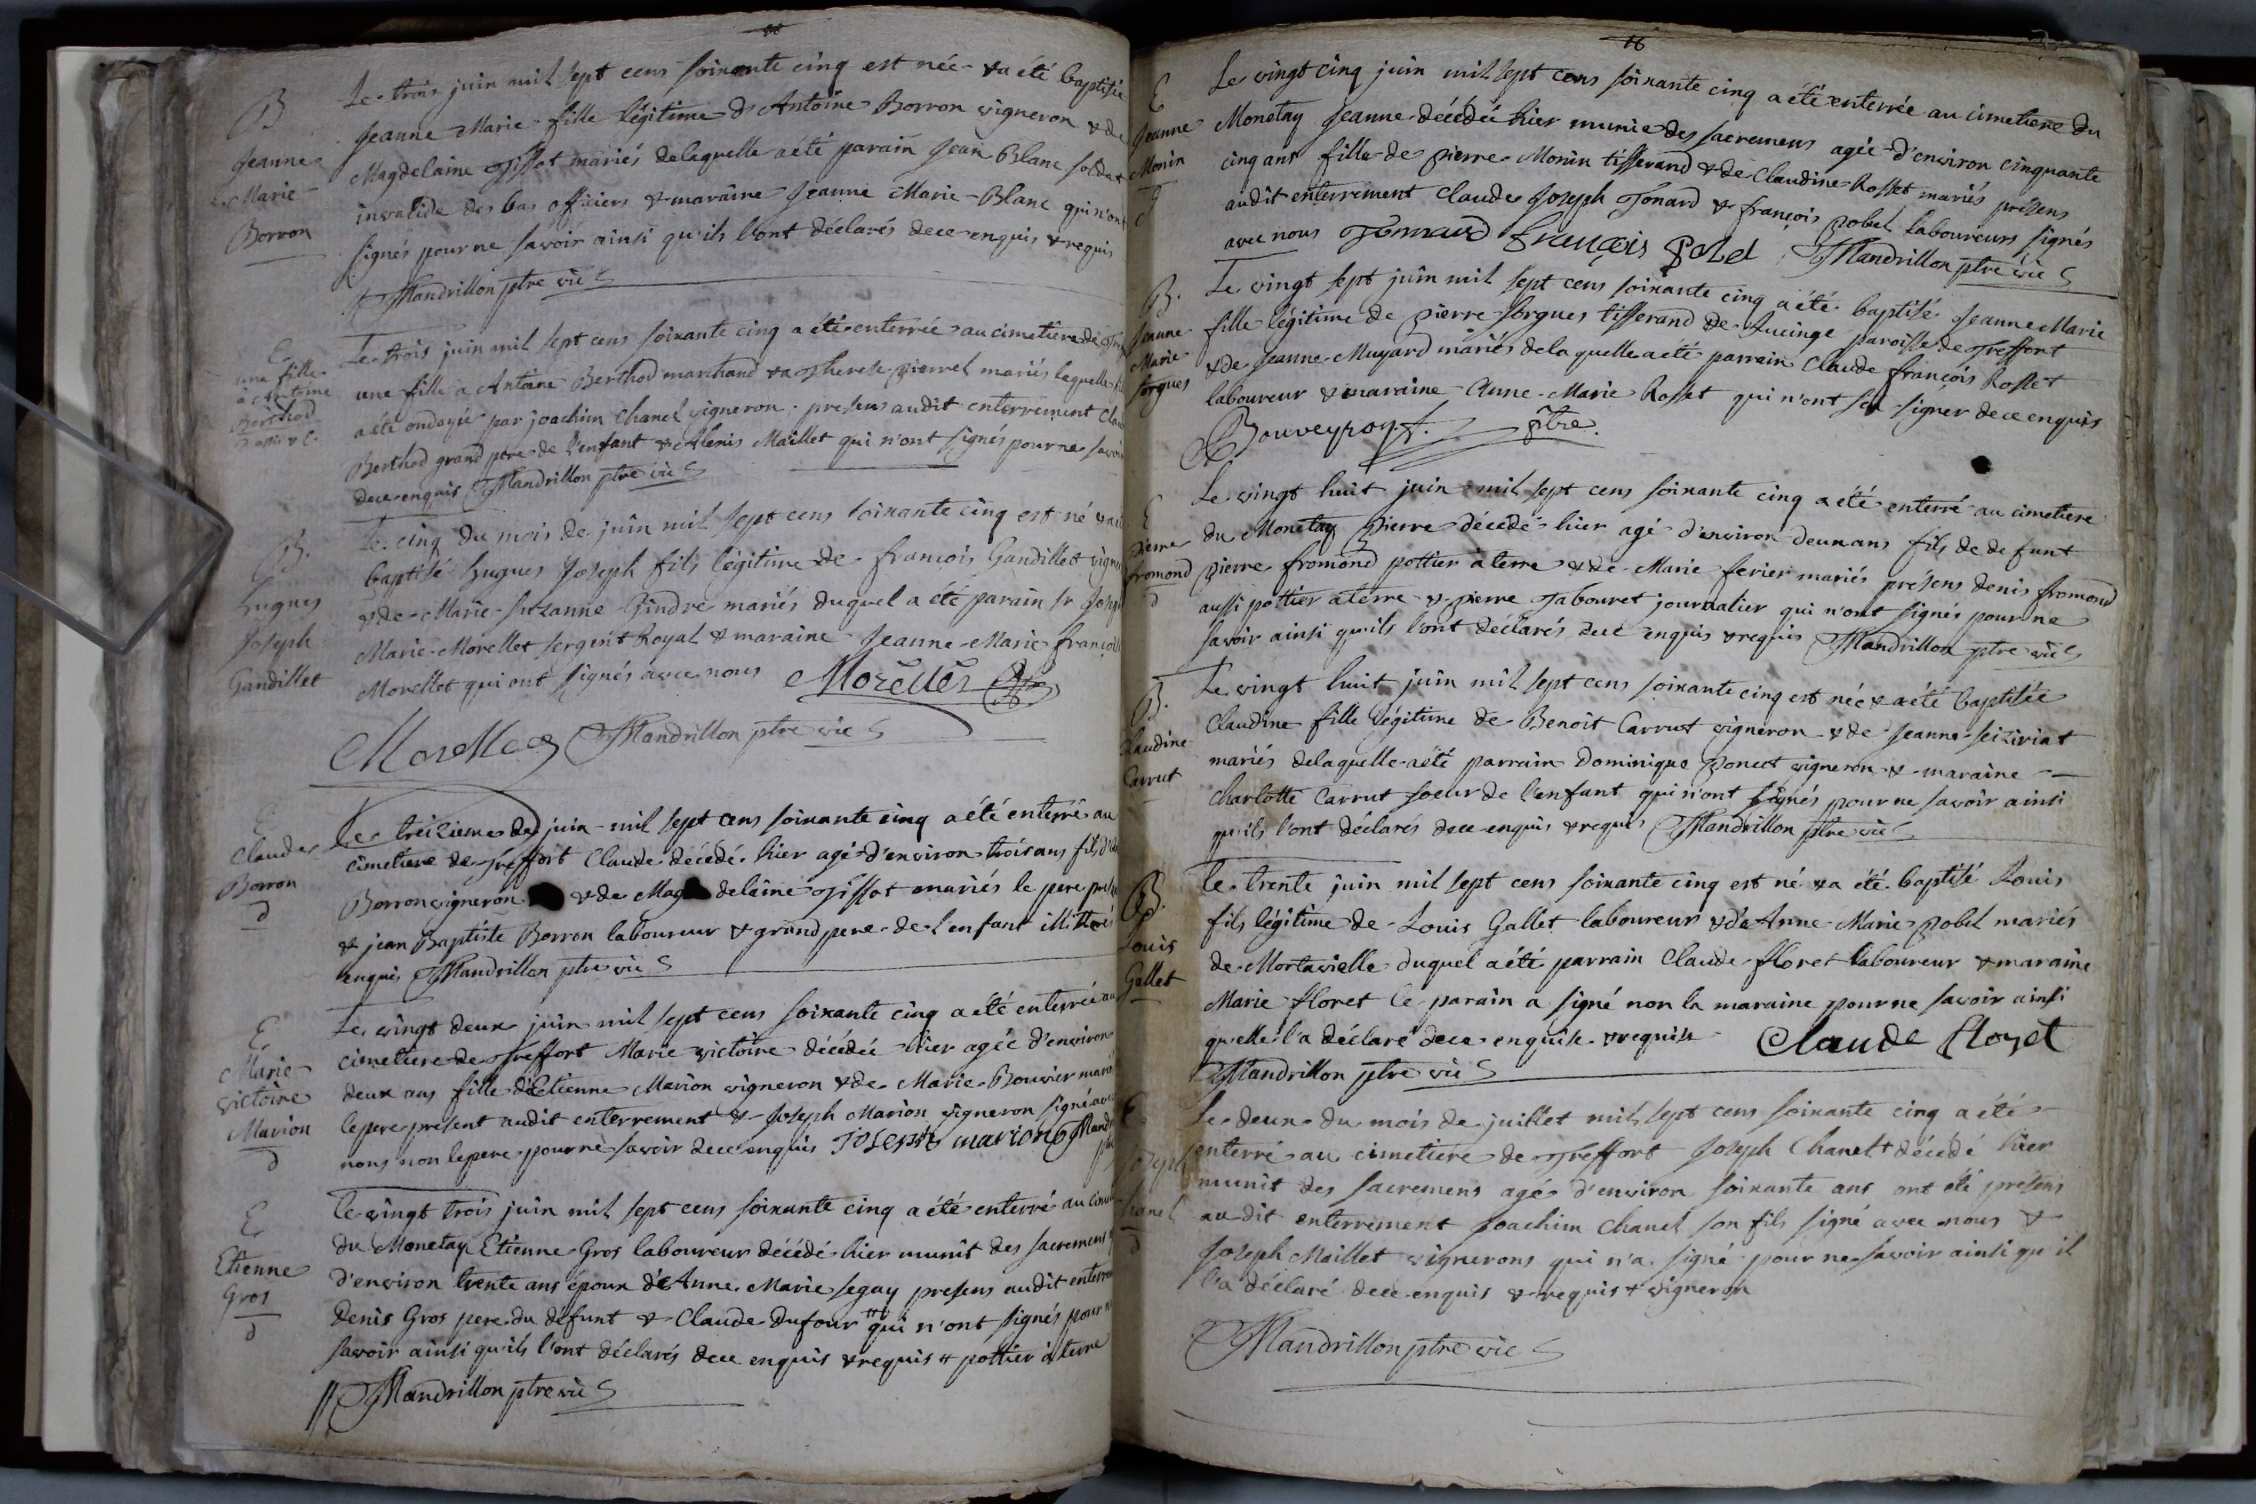 B
Jeanne
Marie
Borron
Le trois juin mil sept cens soixante cinq est née & a été baptisée
Jeanne Marie fille légitime d'Antoine Borron vigneron & de
Magdelaine Tissot mariés delaquelle a été parain Jean Blanc soldat
invalide des bas officiers & maraine Jeanne Marie Blanc qui n'ont
signés pour ne savoir ainsi qu'ils l'ont déclarés dece enquis & requis
Mandrillon ptre vic
E
une fille
à Antoine
Berthod
Le trois juin mil sept cens soixante cinq a été enterrée au cimetiere de
une fille a Antoine Berthod marchand & a Therese pierrel mariés laquelle
a été ondoyée par joachim Chanel vigneron. presens audit enterrement
Berthod grand pere de l'enfant & Alexis Maillet qui n'ont signés pour ne savoir
dece enquis Mandrillon ptre vic
B.
hugues
Joseph
Gandillet
Le cinq du mois de juin mil sept cens soixante cinq est né & a
baptisé hugues Joseph fils légitime de francois Gandillet
& de Marie Suzanne Gindre mariés duquel a été parain sr
Marie Morellet sergent Royal & maraine Jeanne Marie
Morellet qui ont signés avec nous Morellet
Morellet Mandrillon ptre vic
E
Claude
Borron
d
Le treizieme de juin mil sept cens soixante cinq a été enterré au
cimetiere de treffort Claude décédé hier agé d'environ trois ans
Borron vigneron & de Magdelaine Tissot mariés le pere
& jean Baptiste Borron laboureur & grand pere de l'enfant
enquis Mandrillon ptre vic
E
Marie
victoire
Marion
d
Le vingt deux juin mil sept cens soixante cinq a été enterrée au
cimetiere de Treffort Marie victoire décédée hier agée d'environ
deux ans fille d'Etienne Marion vigneron & de Marie Bouvier
le pere present audit enterrement & Joseph Marion vigneron signé
nous non le pere pour ne savoir dece enquis Joseph marion
E
Etienne
Gros
d
Le vingt trois juin mil sept cens soixante cinq a été enterré au
du Monetay Etienne Gros laboureur décédé hier munit des sacremens
d'environ trente ans époux d'Anne Marie Segay presens audit
Denis Gros pere du défunt & Claude Dufour # qui n'ont signés pour
savoir ainsi qu'ils l'ont déclarés dece enquis & requis # pottier à terre
Mandrillon ptre vic
E
Jeanne
Monin
Le vingt cinq juin mil sept cens soixante cinq a été enterrée au cimetiere du
Monetay Jeanne décédée hier munie des sacremens agée d'environ cinquante
cinq ans fille de pierre Monin tisserand & de Claudine Rosset mariés présens
audit enterrement Claude Joseph Tonard & françois pobel laboureurs signés
avec nous françois Mandrillon ptre vic
B.
Jeanne
Marie
Sorgues
Le vingt sept juin mil sept cens soixante cinq a été baptisé Jeanne Marie
fille légitime de pierre Sorgues tisserand de Lucinge paroisse de Treffort
& de Jeanne Muyard mariés dela quelle a été parrain Claude françois Rosset
laboureur & maraine Anne Marie Rosset qui n'ont sçu signer dece enquis
Bouveyron ptre.
E
pierre
fromond
d
Le vingt huit juin mil sept cens soixante cinq a été enterré au cimetiere
du Monetay pierre décédé hier agé d'environ deux ans fils de defunt
pierre fromond pottier à terre & de Marie ferier mariés présens denis fromond
aussi pottier à terre & pierre Tabouret journalier qui n'ont signés pour ne
savoir ainsi qu'ils l'ont déclarés dece enquis & requis Mandrillon ptre vic
B.
Claudine
Carrut
Le vingt huit juin mil sept cens soixante cinq est née & a été baptisée
Claudine fille légitime de Benoit Carrut vigneron & de Jeanne
mariés delaquelle a été parrain Dominique poncet vigneron & maraine
Charlotte Carrut soeur de l'enfant qui n'ont signés pour ne savoir ainsi
qu'ils l'ont déclarés dece enquis & requis Mandrillon ptre vic
B.
Louis
Gallet
Le trente juin mil sept cens soixante cinq est né & a été baptisé Louis
fils légitime de Louis Gallet laboureur & d'Anne Marie pobel mariés
de Mortavielle duquel a été parrain Claude floret laboureur & maraine
Marie floret le parain a signé non la maraine pour ne savoir ainsi
quelle l'a déclaré dece enquise & requise Claude floret
Mandrillon ptre vic
E
Joseph
Chanel
d
Le deux du mois de juillet mil sept cens soixante cinq a été
enterré au cimetiere de Treffort Joseph Chanel + décédé hier
munit des sacremens agé d'environ soixante ans ont été présens
audit enterrement Joachim Chanel son fils signé avec nous &
Joseph Maillet vignerons qui n'a signé pour ne savoir ainsi qu'il
l'a déclaré dece enquis & requis + vigneron
Mandrillon ptre vic